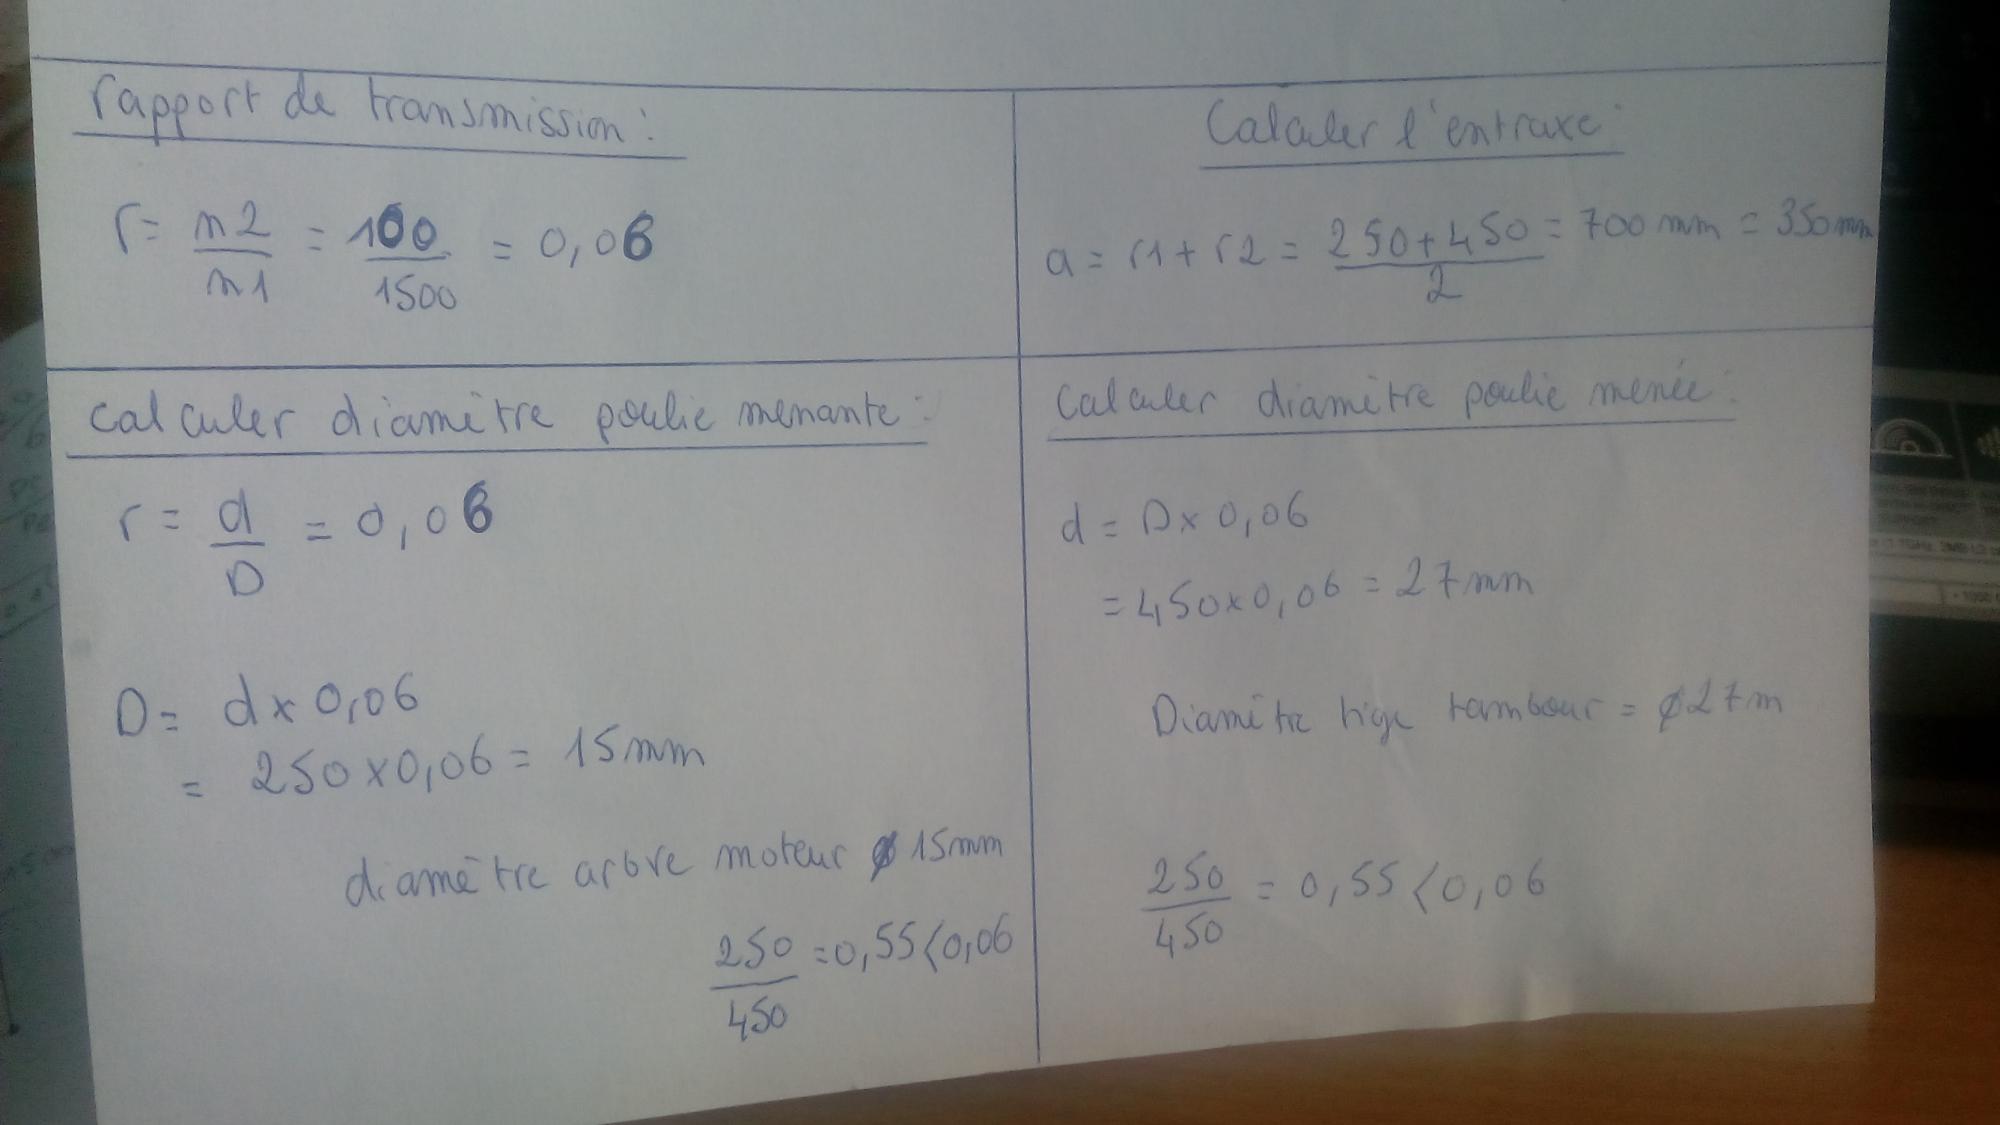 rapport de transmission :
r = n2/n1 = 100/1500 = 0,06
Calculer l'entraxe :
a = r1 + r2 = (250+450)/2 = 700 mm = 350 mm
calculer diamètre poulie menante :
r = d/D = 0,06
D = d x 0,06
= 250 x 0,06 = 15mm
diamètre arbre moteur ø 15mm
250/450 = 0,55 < 0,06
Calculer diamètre poulie menée :
d = D x 0,06
= 450 x 0,06 = 27mm
Diamètre tige tambour = ø27m
250/450 = 0,55 < 0,06